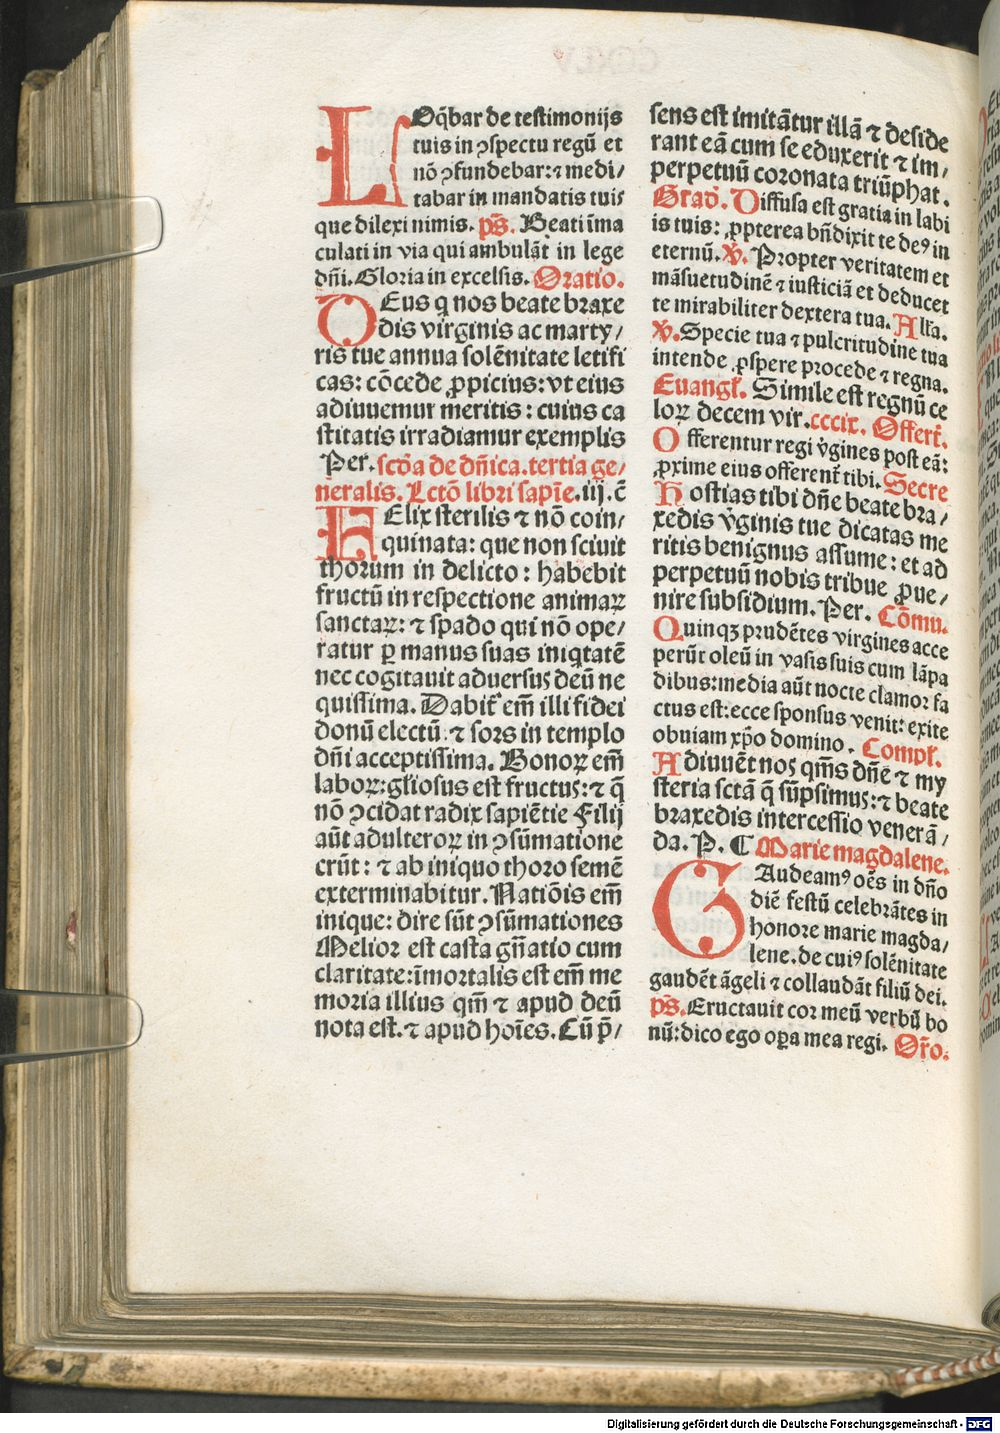 LOq̄bar de testimonijs
tuis in ꝯspectu regū et
nō ꝯfundebar: ⁊ medi/
tabar in mandatis tuis
que dilexi nimis. p̄s. Beati īma
culati in via qui ambulāt in lege
dn̄i. Gloria in excelsis. Oratio.
DEus q nos beate braxe
dis virginis ac marty/
ris tue annua solēnitate letifi
cas: cōcede ꝓpicius: vt eius
adiuuemur meritis: cuius ca
stitatis irradiamur exemplis
Per. scd̄a de dn̄ica. tertia ge/
neralis. Lctō libri sapīe. iij. c̄
FElix sterilis ⁊ nō coin/
quinata: que non sciuit
thorum in delicto: habebit
fructū in respectione animaꝝ
sanctaꝝ: ⁊ spado qui nō ope/
ratur ꝑ manus suas iniqtatē
nec cogitauit aduersus deū ne
quissima. Dabit᷑ em̄ illi fidei
donū electū: ⁊ sors in templo
dn̄i acceptissima. Bonoꝝ em̄
laboꝝ: gl̄iosus est fructus: ⁊ q̄
nō ꝯcidat radix sapiētie Filij
aūt adulteroꝝ in ꝯsūmatione
erūt: ⁊ ab iniquo thoro semē
exterminabitur. Natiōis em̄
inique: dire sūt ꝯsūmationes
Melior est casta gn̄atio cum
claritate: īmortalis est em̄ me
moria illius qm̄ ⁊ apud deū
nota est. ⁊ apud hoīes. Cū p̄/
sens est imitātur illā ⁊ deside
rant eā cum se eduxerit ⁊ im/
perpetuū coronata triūphat.
Grad̄. Diffusa est gratia in labi
is tuis: ꝓpterea bn̄dixit te deꝰ in
eternū. v̄. Propter veritatem et
māsuetudinē ⁊ iusticiā et deducet
te mirabiliter dextera tua. Alla.
v̄. Specie tua ⁊ pulcritudine tua
intende ꝓspere procede ⁊ regna.
Euangł. Simile est regnū ce
loꝝ decem vir. cccix. Offert̄.
Offerentur regi v̄gines post eā:
ꝓxime eius offerent᷑ tibi. Secre
Hostias tibi dn̄e beate bra/
xedis v̄ginis tue dicatas me
ritis benignus assume: et ad
perpetuū nobis tribue ꝓue/
nire subsidium. Per. Cōmu.
Quinqꝫ prudētes virgines acce
perūt oleū in vasis suis cum lāpa
dibus: media aūt nocte clamor fa
ctus est: ecce sponsus venit: exite
obuiam xp̄o domino. Compł.
Adiuuēt nos qm̄s dn̄e ⁊ my
steria sctā q̄ sūpsimus: ⁊ beate
braxedis intercessio venerā/
da. P. C Marie magdalene.
GAudeamꝰ oēs in dn̄o
diē festū celebrātes in
honore marie magda/
lene. de cuiꝰ solēnitate
gaudēt āgeli ⁊ collaudāt filiū dei.
p̄s. Eructauit cor meū verbū bo
nū: dico ego oꝑa mea regi. Or̄o.
Digitalisierung gefördert durch die Deutsche Forschungsgemeinschaft - DFG